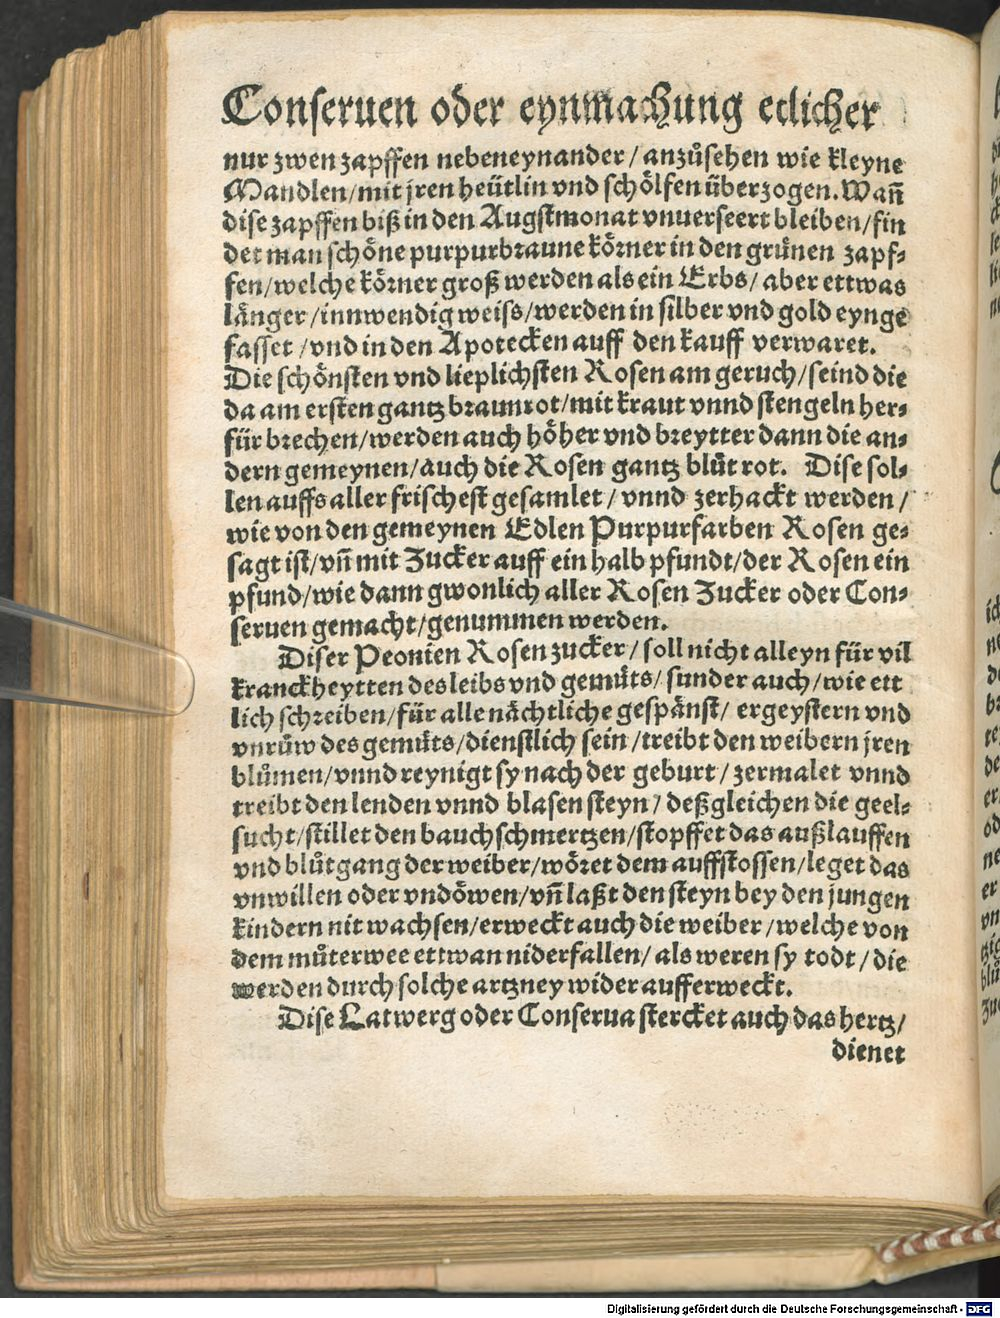 Conſeruen oder eynmachung etlicher
nur zwen zapffen nebeneynander / anzůſehen wie kleyne
Mandlen / mit jren heütlin vnd ſchölfen überzogen. Wañ
diſe zapffen biß in den Augſtmonat vnuerſeert bleiben / fin
det man ſchöne purpurbraune körner in den grünen zapf⸗
fen / welche körner groß werden als ein Erbs / aber ettwas
länger / innwendig weiſs / werden in ſilber vnd gold eynge
faſſet / vnd in den Apotecken auff den kauff verwaret.
Die ſchönſten vnd lieplichſten Roſen am geruch / ſeind die
da am erſten gantz braunrot / mit kraut vnnd ſtengeln her⸗
für brechen / werden auch höher vnd breytter dann die an⸗
dern gemeynen / auch die Roſen gantz blůt rot. Diſe ſol⸗
len auffs aller friſcheſt geſamlet / vnnd zerhackt werden /
wie von den gemeynen Edlen Purpurfarben Roſen ge⸗
ſagt iſt / vñ mit Zucker auff ein halb pfundt / der Roſen ein
pfund / wie dann gwonlich aller Roſen Zucker oder Con⸗
ſeruen gemacht / genummen werden.
Diſer Peonien Roſenzucker / ſoll nicht alleyn für vil
kranckheytten des leibs vnd gemüts / ſunder auch / wie ett
lich ſchreiben / für alle nächtliche geſpänſt / ergeyſtern vnd
vnrůw des gemüts / dienſtlich ſein / treibt den weibern jren
blůmen / vnnd reynigt ſy nach der geburt / zermalet vnnd
treibt den lenden vnnd blaſen ſteyn / deßgleichen die geel⸗
ſucht / ſtillet den bauchſchmertzen / ſtopffet das außlauffen
vnd blůtgang der weiber / wöret dem auffſtoſſen / leget das
vnwillen oder vndöwen / vñ laßt den ſteyn bey den jungen
kindern nit wachſen / erweckt auch die weiber / welche von
dem můterwee ettwan niderfallen / als weren ſy todt / die
werden durch ſolche artzney wider aufferweckt.
Diſe Latwerg oder Conſerua ſtercket auch das hertz /
dienet
Digitalisierung gefördert durch die Deutsche Forschungsgemeinschaft - DFG